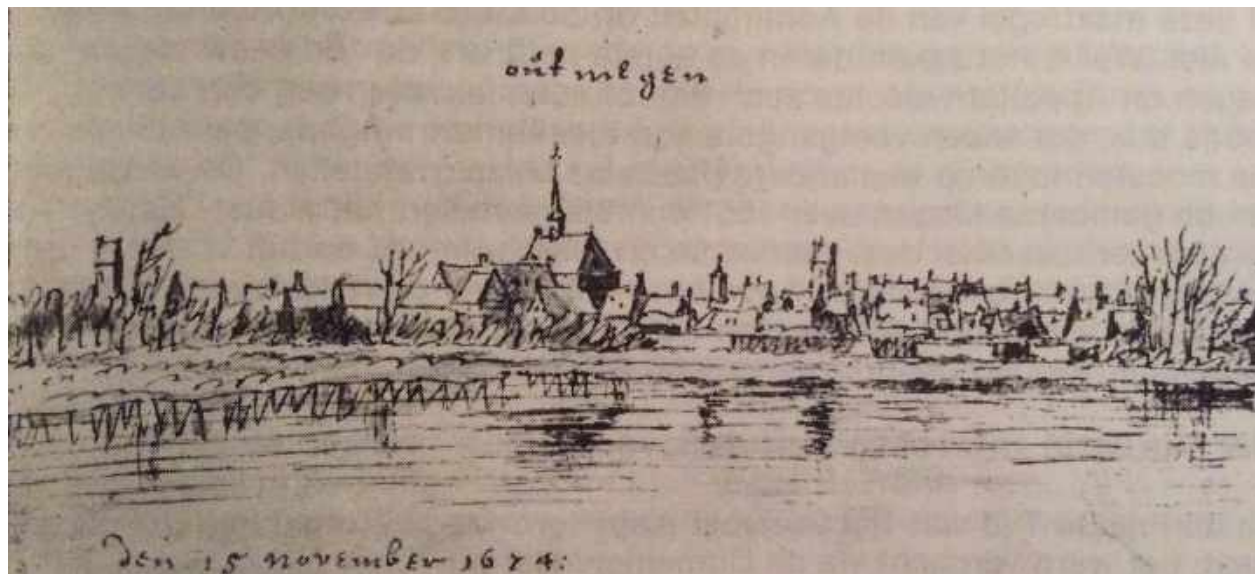 oůt megen
den 15 november 1674: